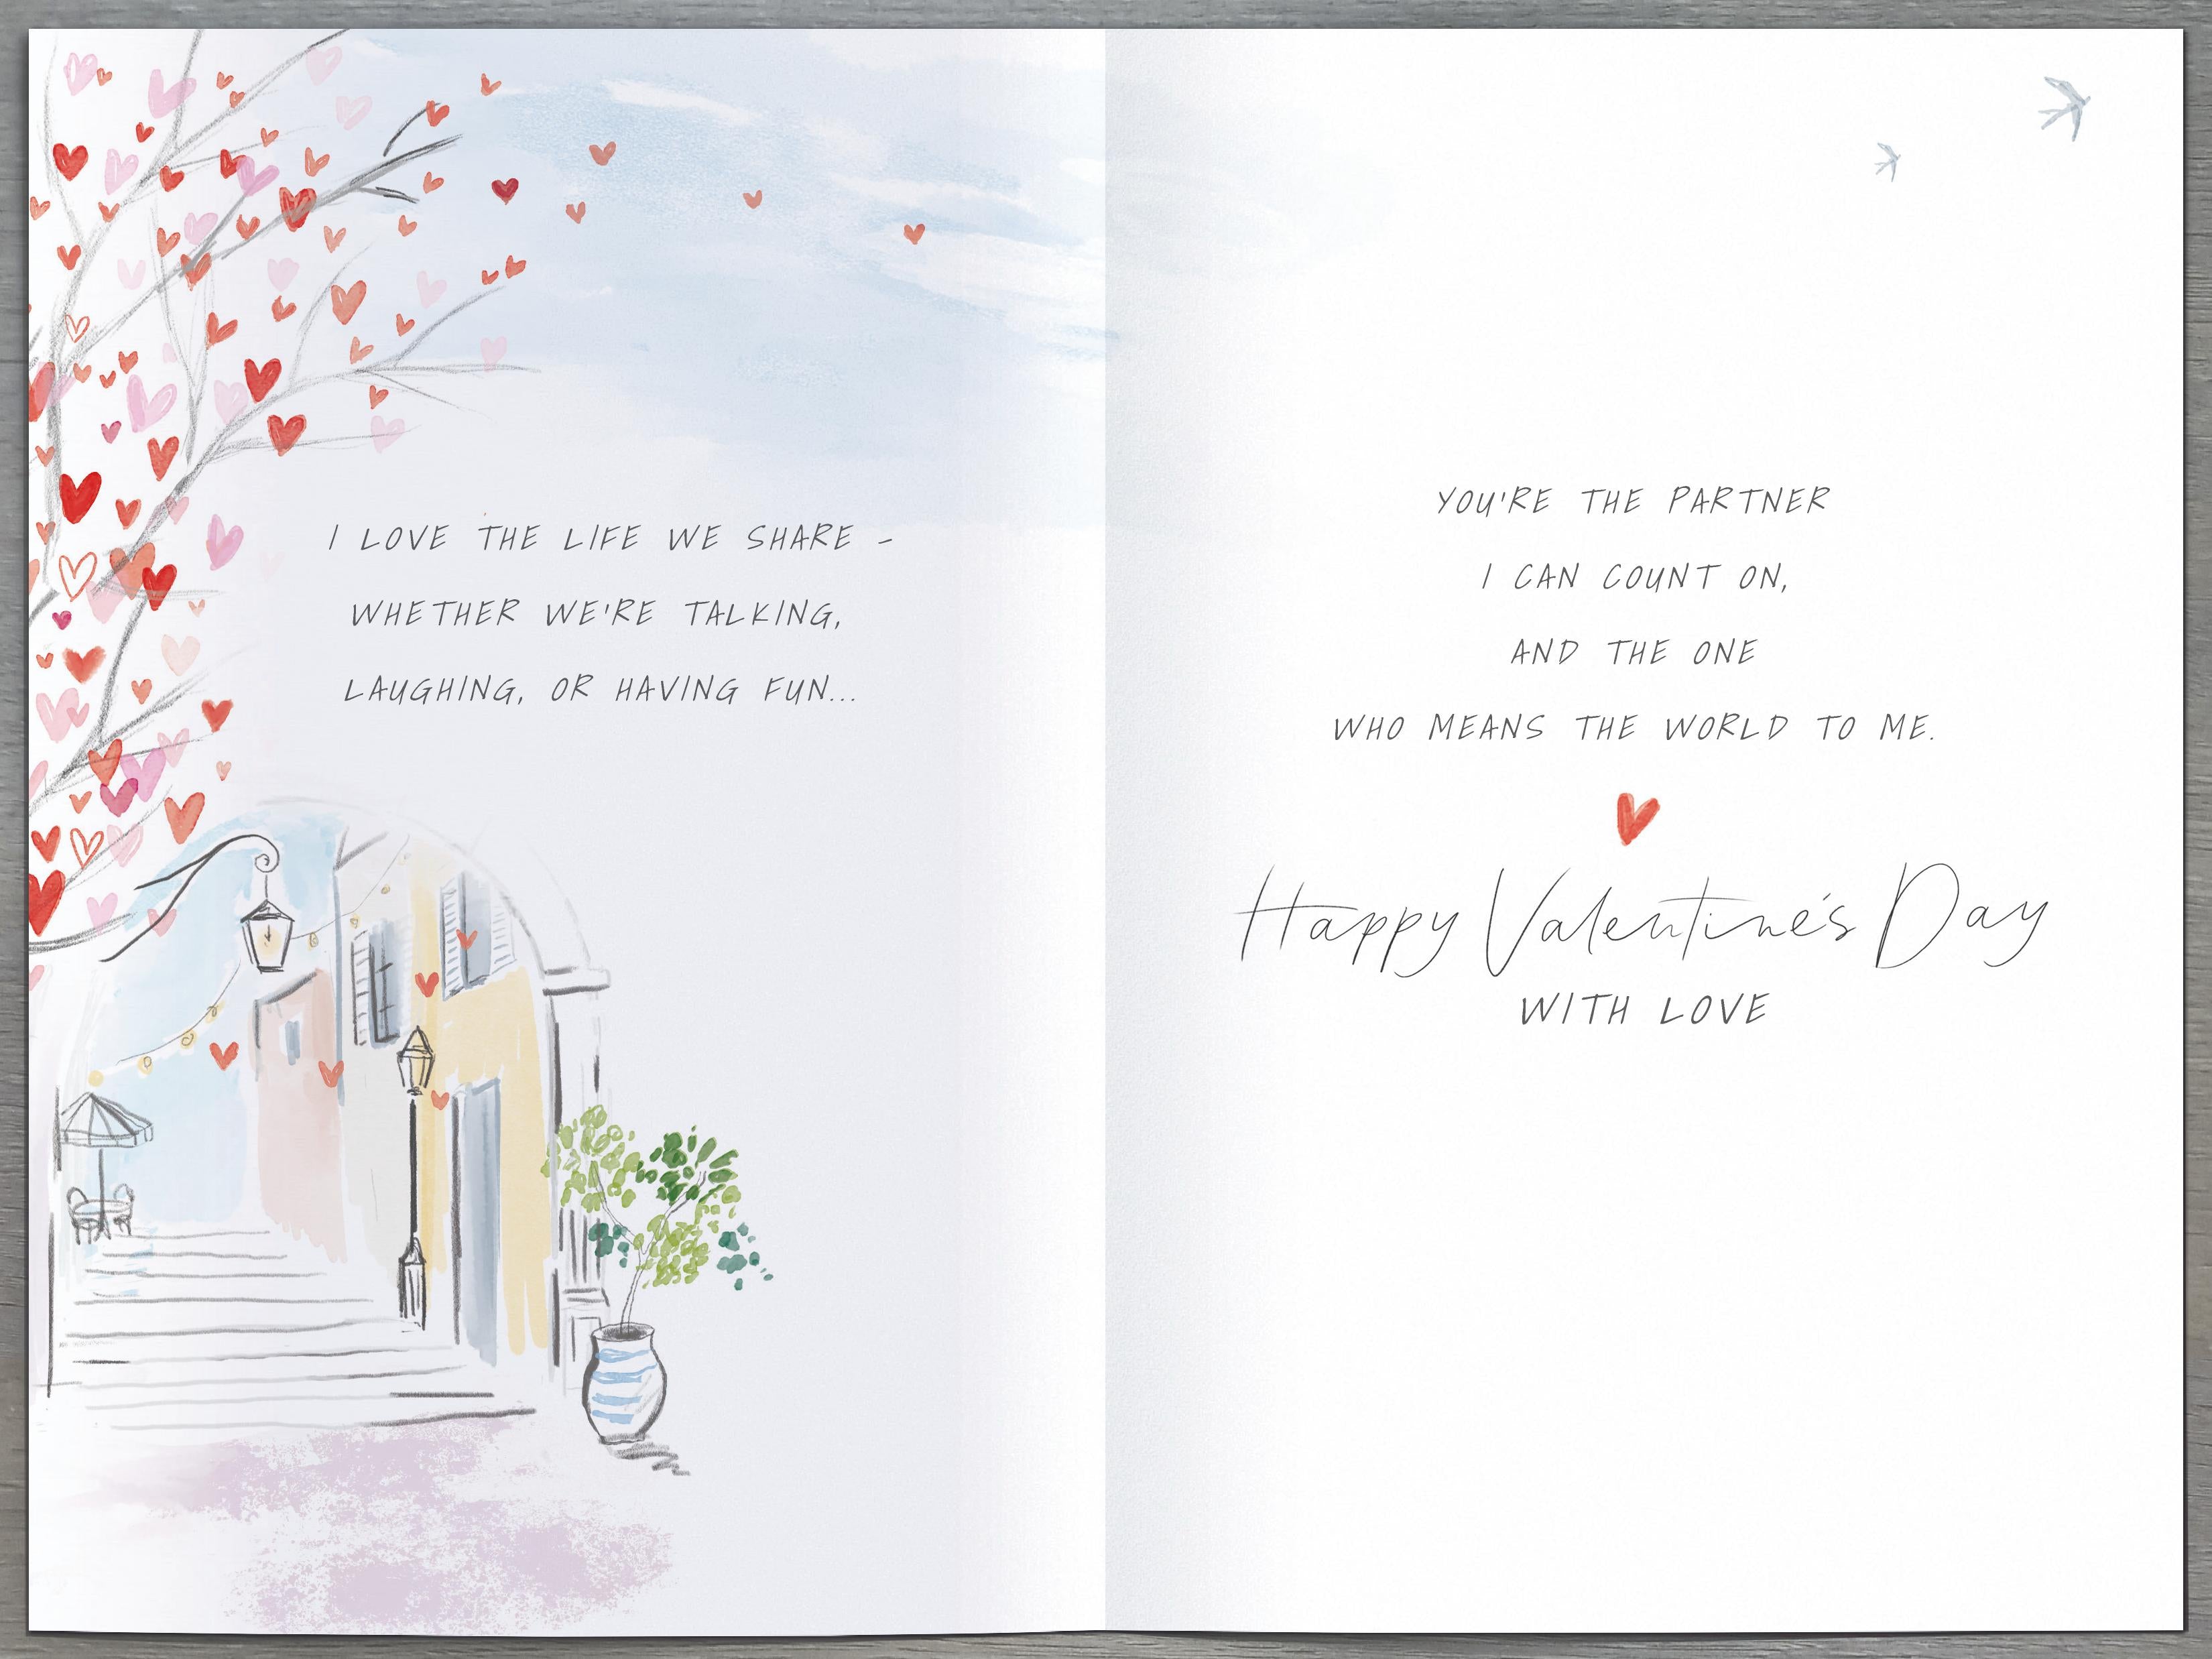 I LOVE THE LIFE WE SHARE -
WHETHER WE'RE TALKING,
LAUGHING, OR HAVING FUN...
YOU'RE THE PARTNER
I CAN COUNT ON,
AND THE ONE
WHO MEANS THE WORLD TO ME.
Happy Valentine's Day
WITH LOVE